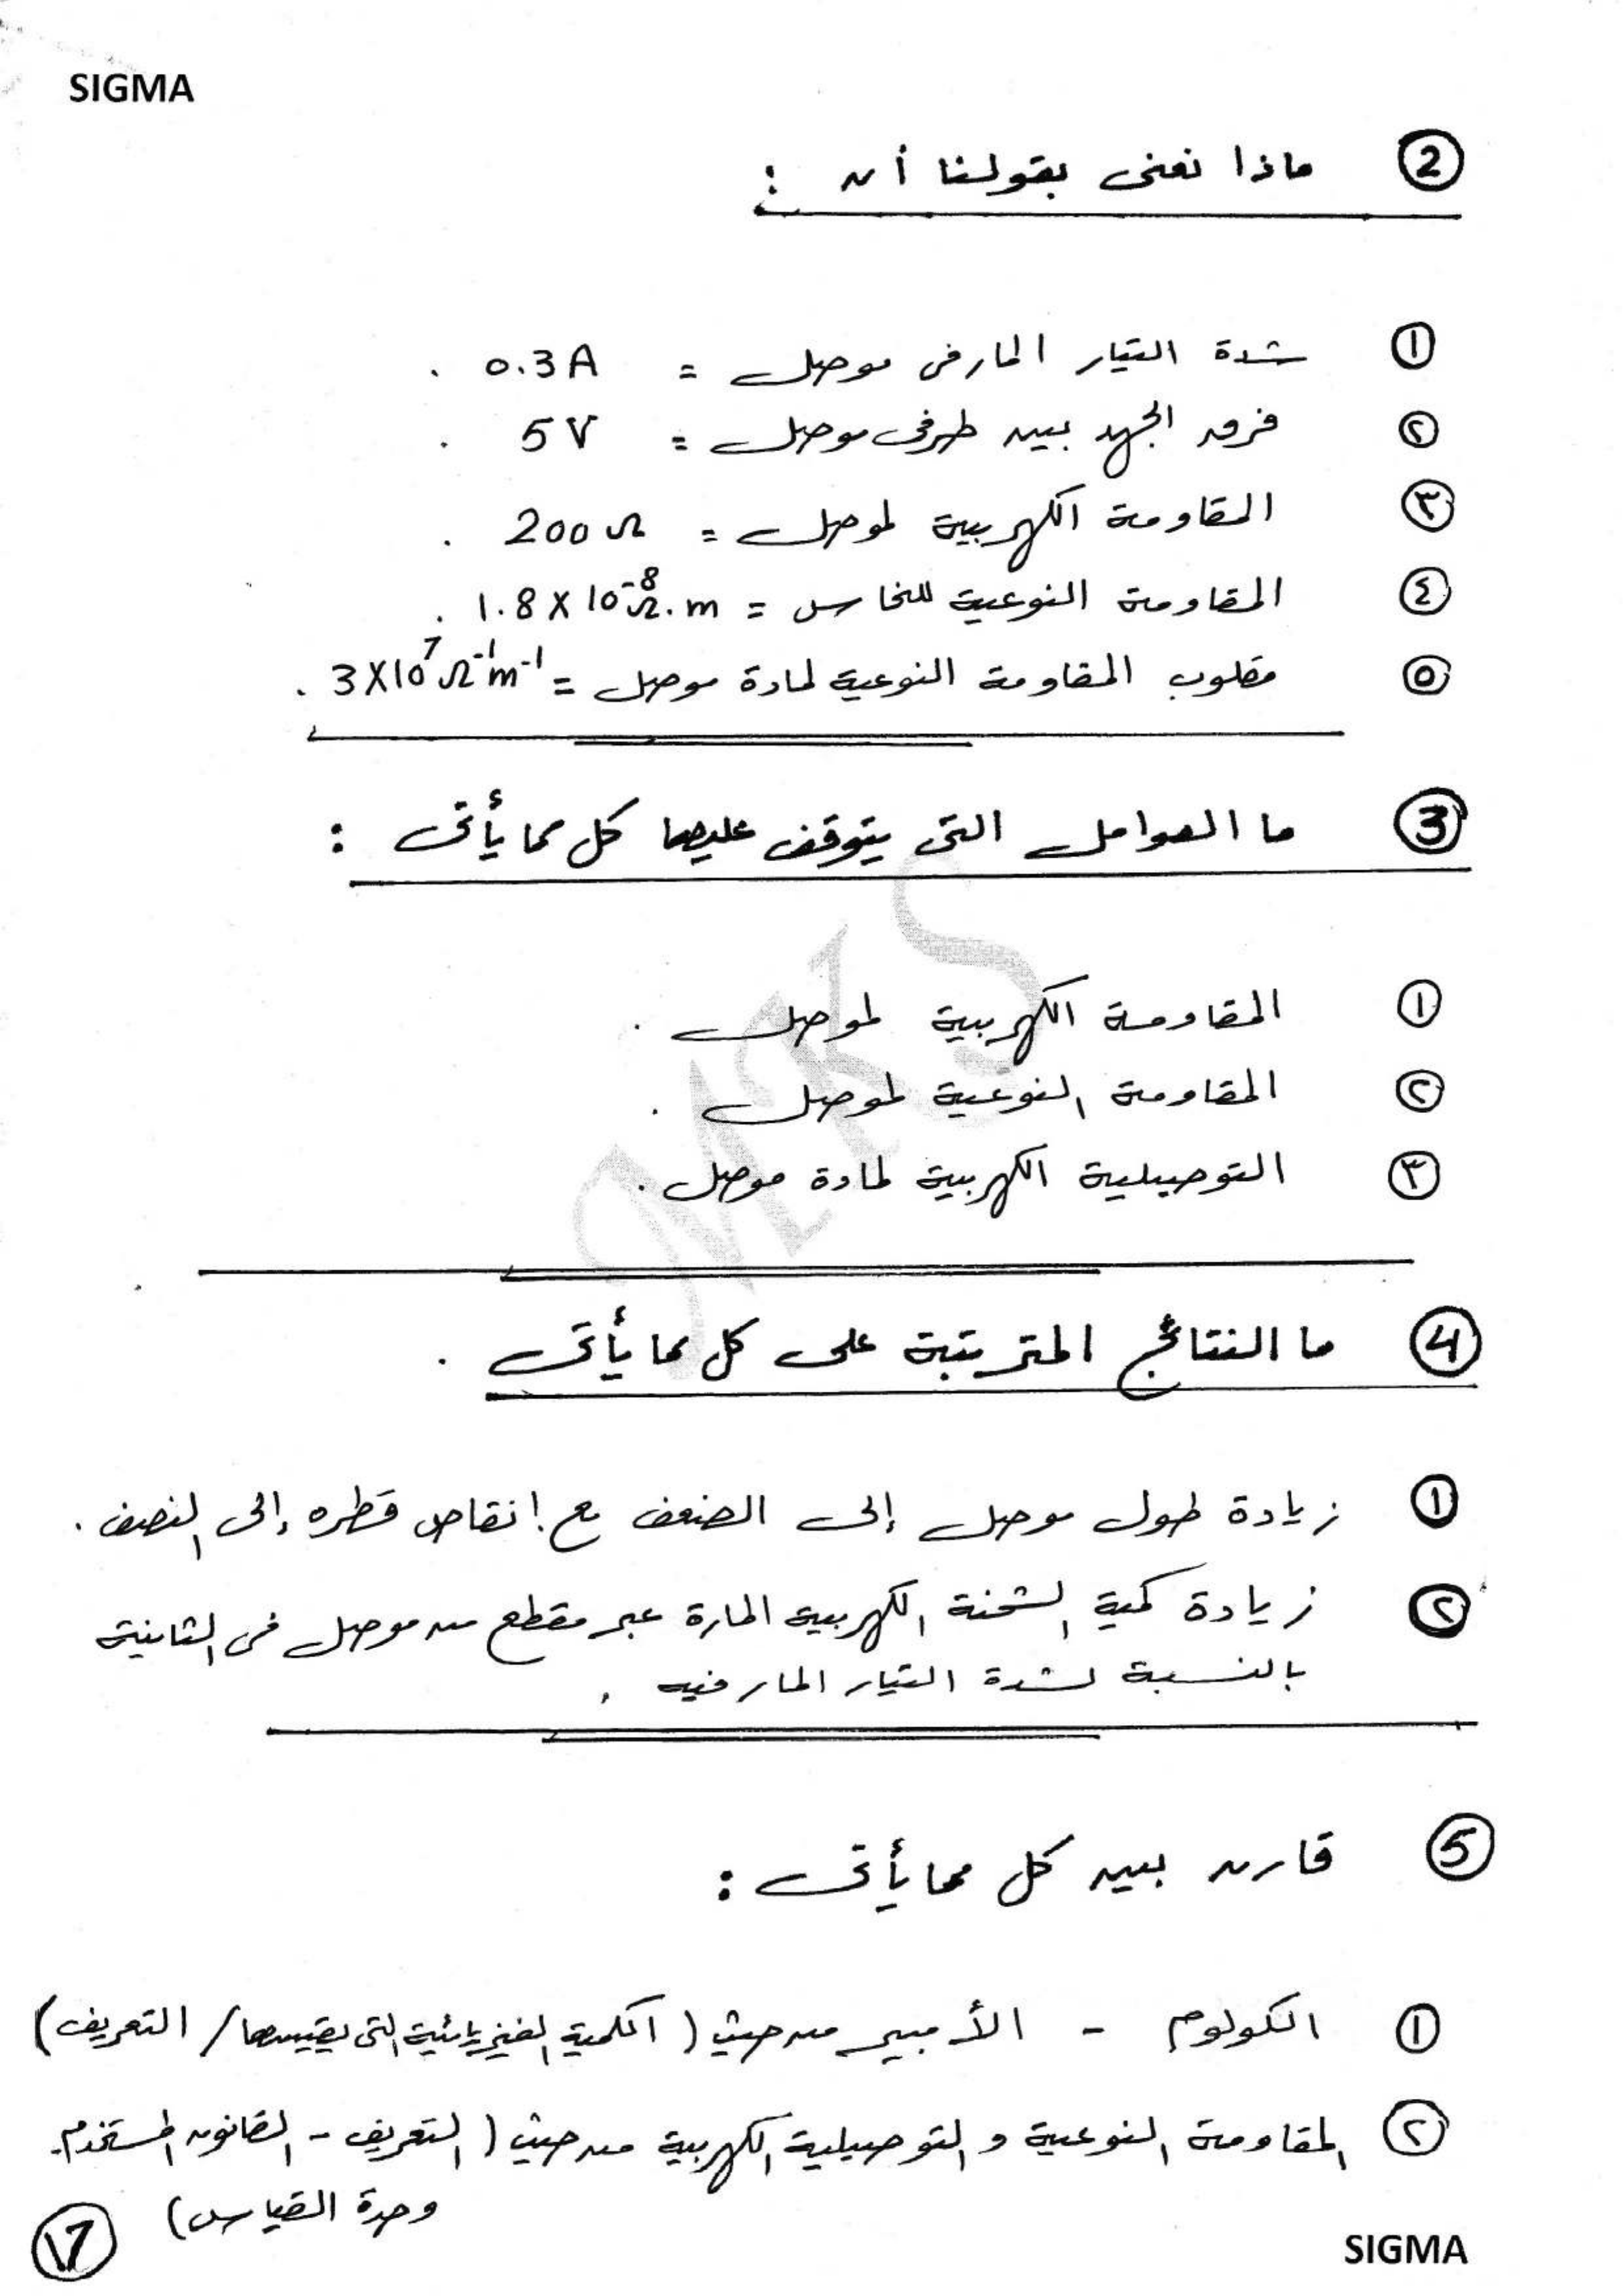 SIGMA
② ماذا نعنى بقولنا أن :
① شدة التيار المار فى موصل = 0.3 A .
② فرق الجهد بين طرفى موصل = 5 V .
③ المقاومة الكهربية لموصل = 200 Ω .
④ المقاومة النوعية للنحاس = 1.8 X 10⁻⁸ Ω.m .
⑤ مقلوب المقاومة النوعية لمادة موصل = 3X10⁷ Ω⁻¹m⁻¹ .
③ ما العوامل التى يتوقف عليها كل مما يأتى :
① المقاومة الكهربية لموصل .
② المقاومة النوعية لموصل .
③ التوصيلية الكهربية لمادة موصل .
MKS
④ ما النتائج المترتبة على كل مما يأتى .
① زيادة طول موصل إلى الضعف مع إنقاص قطره إلى النصف .
② زيادة كمية الشحنة الكهربية المارة عبر مقطع من موصل فى الثانية
بالنسبة لشدة التيار المار فيه .
⑤ قارن بين كل مما يأتى :
① الكولوم - الأمبير من حيث ( الكمية الفيزيائية التى يقيسها / التعريف )
② المقاومة النوعية و التوصيلية الكهربية من حيث ( التعريف - القانون المستخدم -
وحدة القياس )
١٧
SIGMA